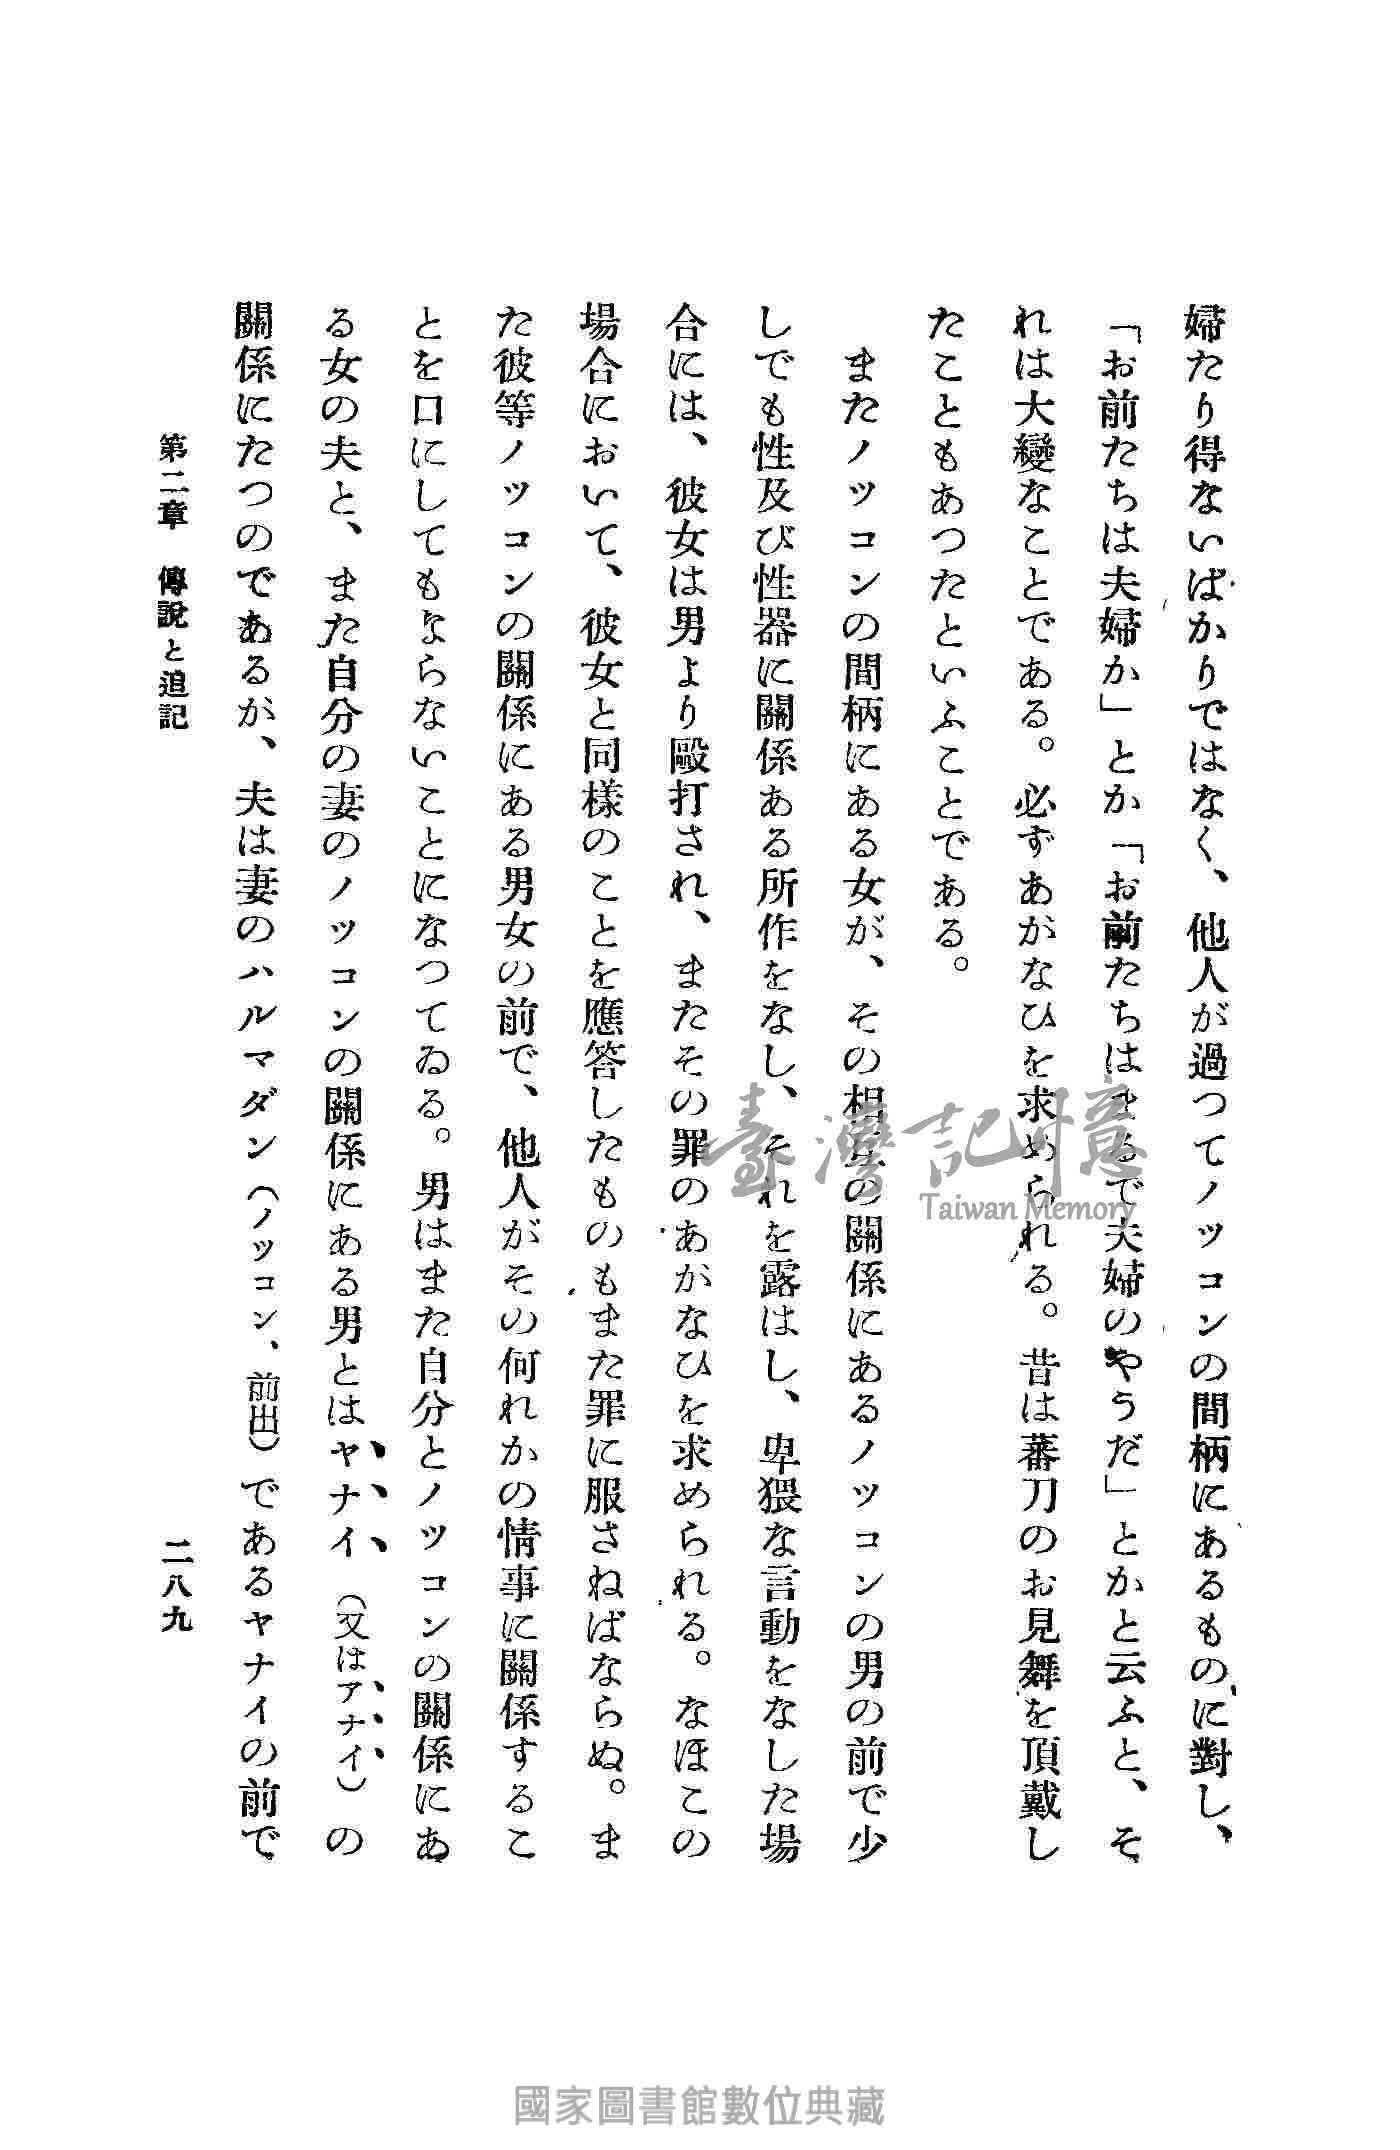 婦たり得ないばかりではなく、他人が過つてノッコンの間柄にあるものに對し、
「お前たちは夫婦か」とか「お前たちはまるで夫婦のやうだ」とかと云ふと、そ
れは大變なことである。必ずあがなひを求められる。昔は蕃刀のお見舞を頂戴し
たこともあつたといふことである。
またノッコンの間柄にある女が、その相互の關係にあるノッコンの男の前で少
しでも性及び性器に關係ある所作をなし、それを露はし、卑猥な言動をなした場
合には、彼女は男より毆打され、またその罪のあがなひを求められる。なほこの
場合において、彼女と同樣のことを應答したものもまた罪に服さねばならぬ。ま
た彼等ノッコンの關係にある男女の前で、他人がその何れかの情事に關係するこ
とを口にしてもならないことになつてゐる。男はまた自分とノッコンの關係にあ
る女の夫と、また自分の妻のノッコンの關係にある男とはヤナイ（又はアナイ）の
關係にたつのであるが、夫は妻のハルマダン（ノッコン、前出）であるヤナイの前で
第二章　傳說と追記
二八九
臺灣記憶
Taiwan Memory
國家圖書館數位典藏